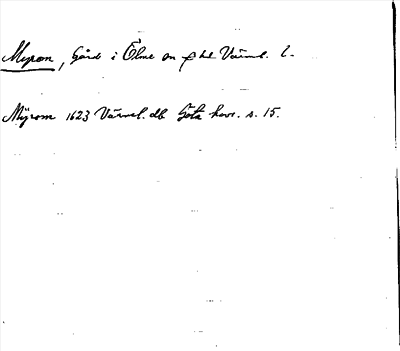 Myrom, Gård i Ölme sn o. hd Värml. l.
Mÿrom 1623 Värml. db Göta hovr. s. 15.